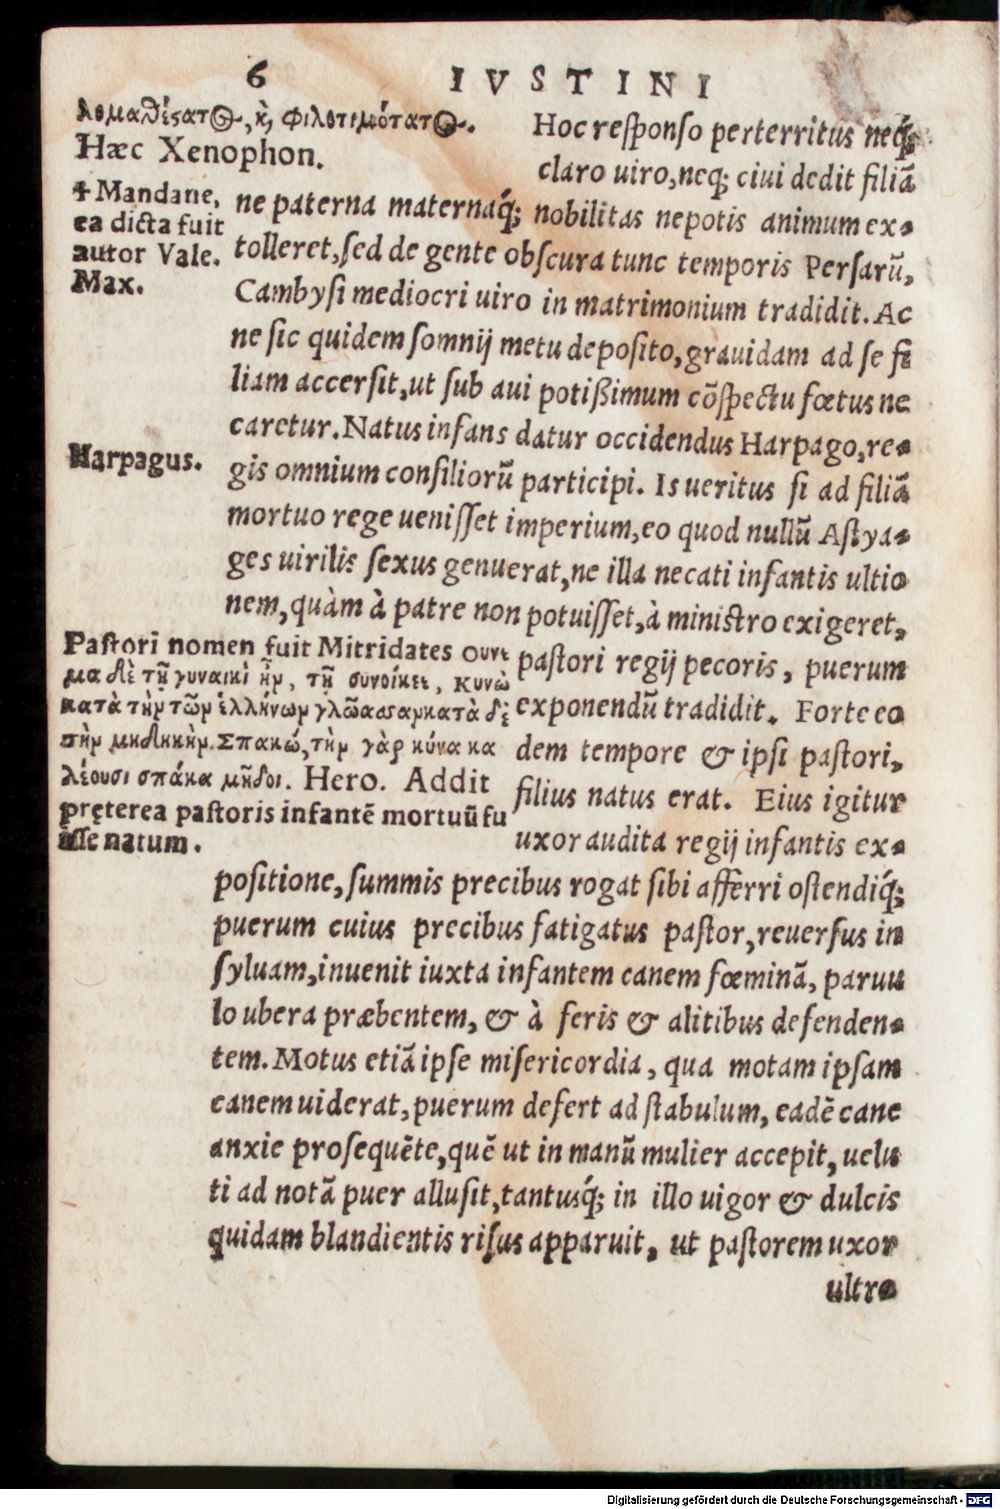 6 IVSTINI
λομαθέςατος, κ, φιλοτιμότατος.
Hæc Xenophon.
Hoc responso perterritus neq́;
claro uiro, neq; ciui dedit filiã
☩ Mandane,
ea dicta fuit
autor Vale.
Max.
ne paterna maternaq́; nobilitas nepotis animum ex-
tolleret, sed de gente obscura tunc temporis Persarũ,
Cambysi mediocri uiro in matrimonium tradidit. Ac
ne sic quidem somnij metu deposito, grauidam ad se fi
liam accersit, ut sub aui potißimum cõspectu fœtus ne
caretur. Natus infans datur occidendus Harpago, re-
Harpagus.
gis omnium consiliorũ participi. Is ueritus si ad filiã
mortuo rege uenisset imperium, eo quod nullũ Astya-
ges uirilis sexus genuerat, ne illa necati infantis ultio
nem, quàm à patre non potuisset, à ministro exigeret,
Pastori nomen fuit Mitridates ουνι
μα δὲ τῇ γυναικὶ ἦν, τῇ συνοίκεε, Κυνὼ
κατὰ τὴν τῶν ἑλλήνων γλῶασαν κατὰ δὲ
τὴν μηδικὴν. Σπακώ, τὴν γὰρ κύνα κα
λέουσι σπάκα μῆδοι. Hero. Addit
pręterea pastoris infantẽ mortuũ fu
isse natum.
pastori regij pecoris, puerum
exponendũ tradidit. Forte eo
dem tempore & ipsi pastori,
filius natus erat. Eius igitur
uxor audita regij infantis ex-
positione, summis precibus rogat sibi afferri ostendiq́;
puerum cuius precibus fatigatus pastor, reuersus in
syluam, inuenit iuxta infantem canem fœminã, paruu
lo ubera præbentem, & à feris & alitibus defenden-
tem. Motus etiã ipse misericordia, qua motam ipsam
canem uiderat, puerum defert ad stabulum, eadẽ cane
anxie prosequẽte, quẽ ut in manũ mulier accepit, uelu
ti ad notã puer allusit, tantusq́; in illo uigor & dulcis
quidam blandientis risus apparuit, ut pastorem uxor
ultro
Digitalisierung gefördert durch die Deutsche Forschungsgemeinschaft - DFG